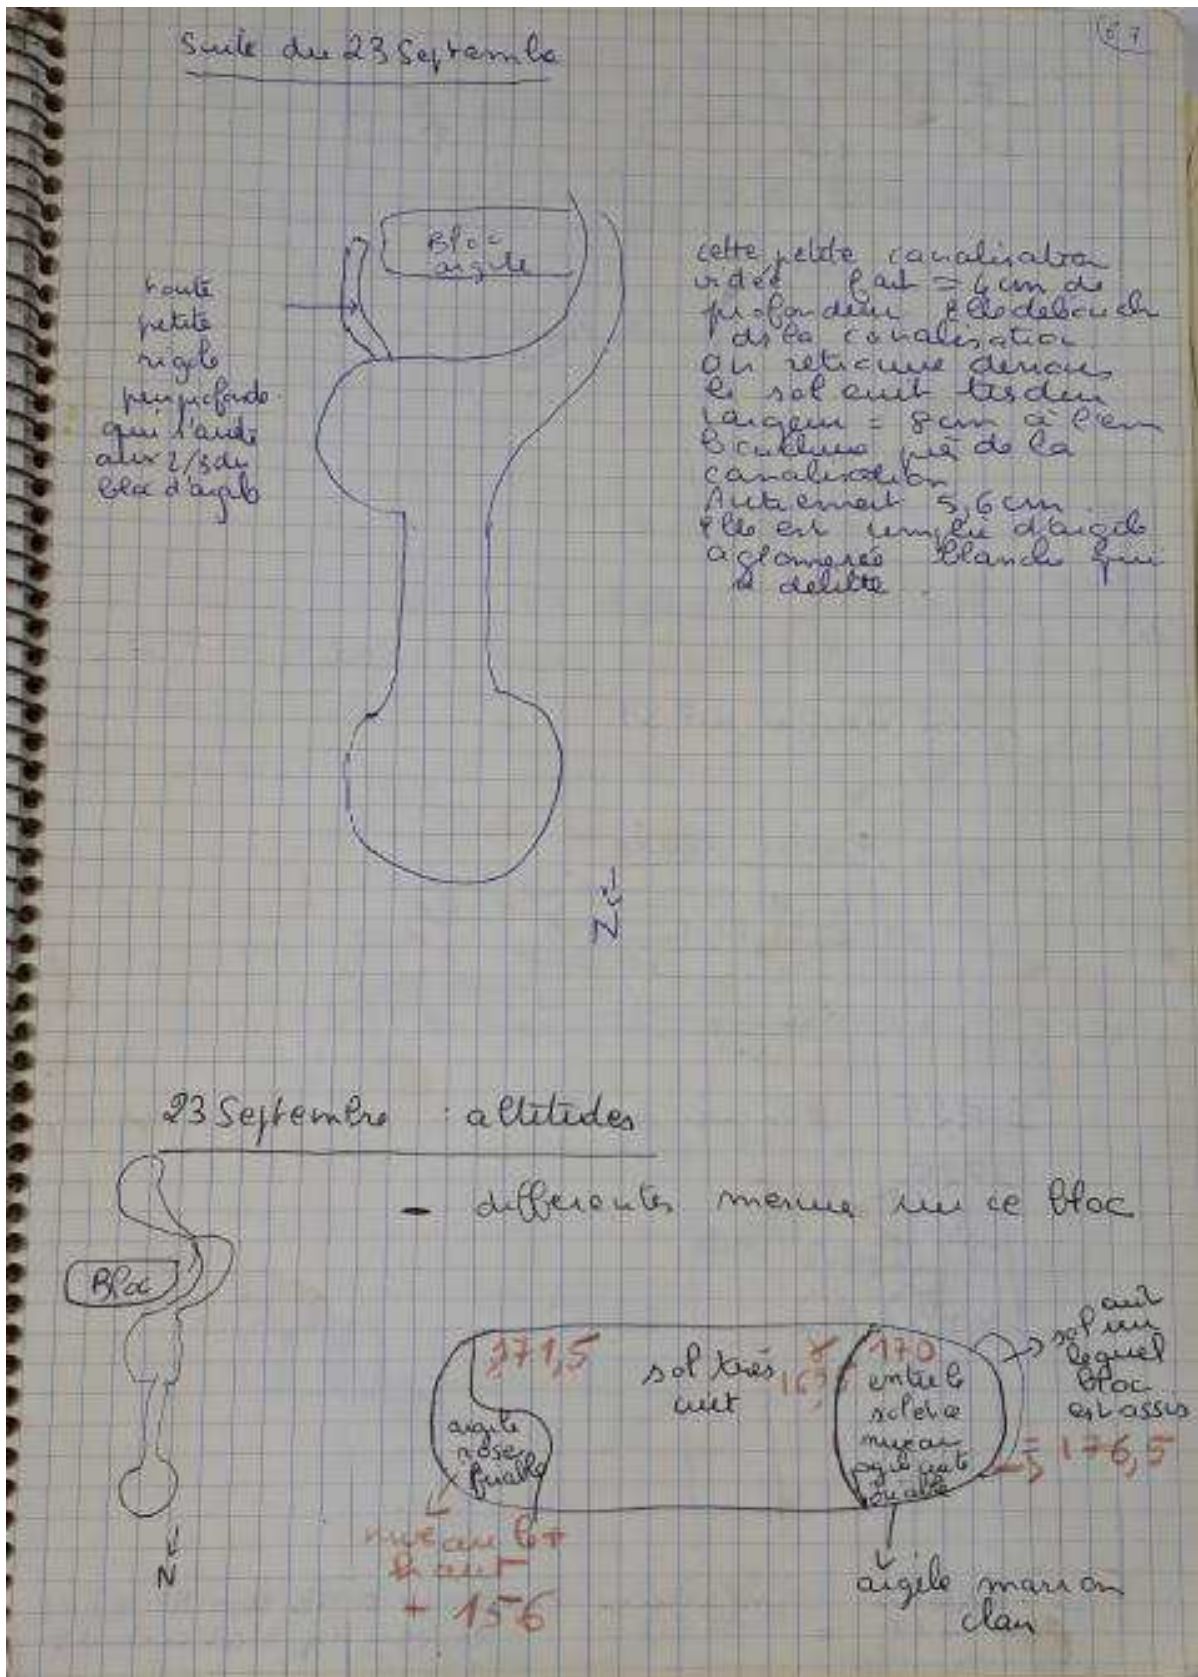 Suite du 23 Septembre
7
Bloc
argile
toute
petite
rigole
peu profonde
qui s'arrête
aux 2/3 du
bloc d'argile
cette petite canalisation
vidée fait = 4 cm de
profondeur Elle débouche
ds la canalisation
on retrouve dessous
le sol cuit très dur
largeur = 8 cm à l'em
bouchure près de la
canalisation
Autrement 5,6 cm
Elle est remplie d'argile
aglomerée blanche qui
se délite.
N
23 Septembre : altitudes
- differentes mesures sur ce bloc
Bloc
N
171,5
sol très
cuit
170
entre le
sol et ce
niveau
argile cuite
friable
argile
rose
friable
niveau le +
haut
- 156
sol sur
lequel
bloc
est assis
= 176,5
argile marron
clair